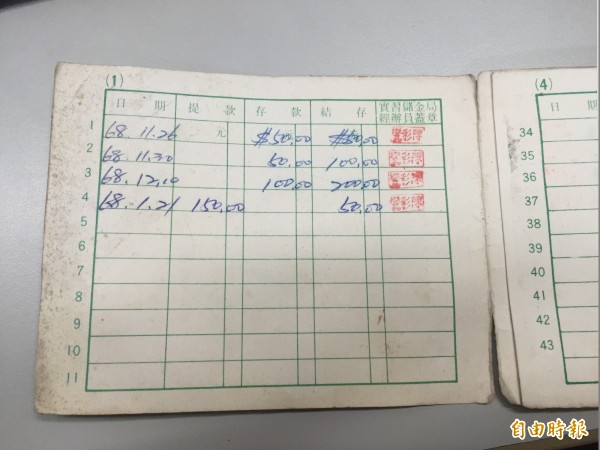 (1)
日期 提款 存款 結存 實習儲金局經辦員蓋章
1 68.11.26 元 $50.00 $50.00
2 68.11.30 50.00 100.00
3 68.12.10 100.00 200.00
4 68.1.21 150.00 50.00
5
6
7
8
9
10
11
(4)
日期
34
35
36
37
38
39
40
41
42
43
自由時報